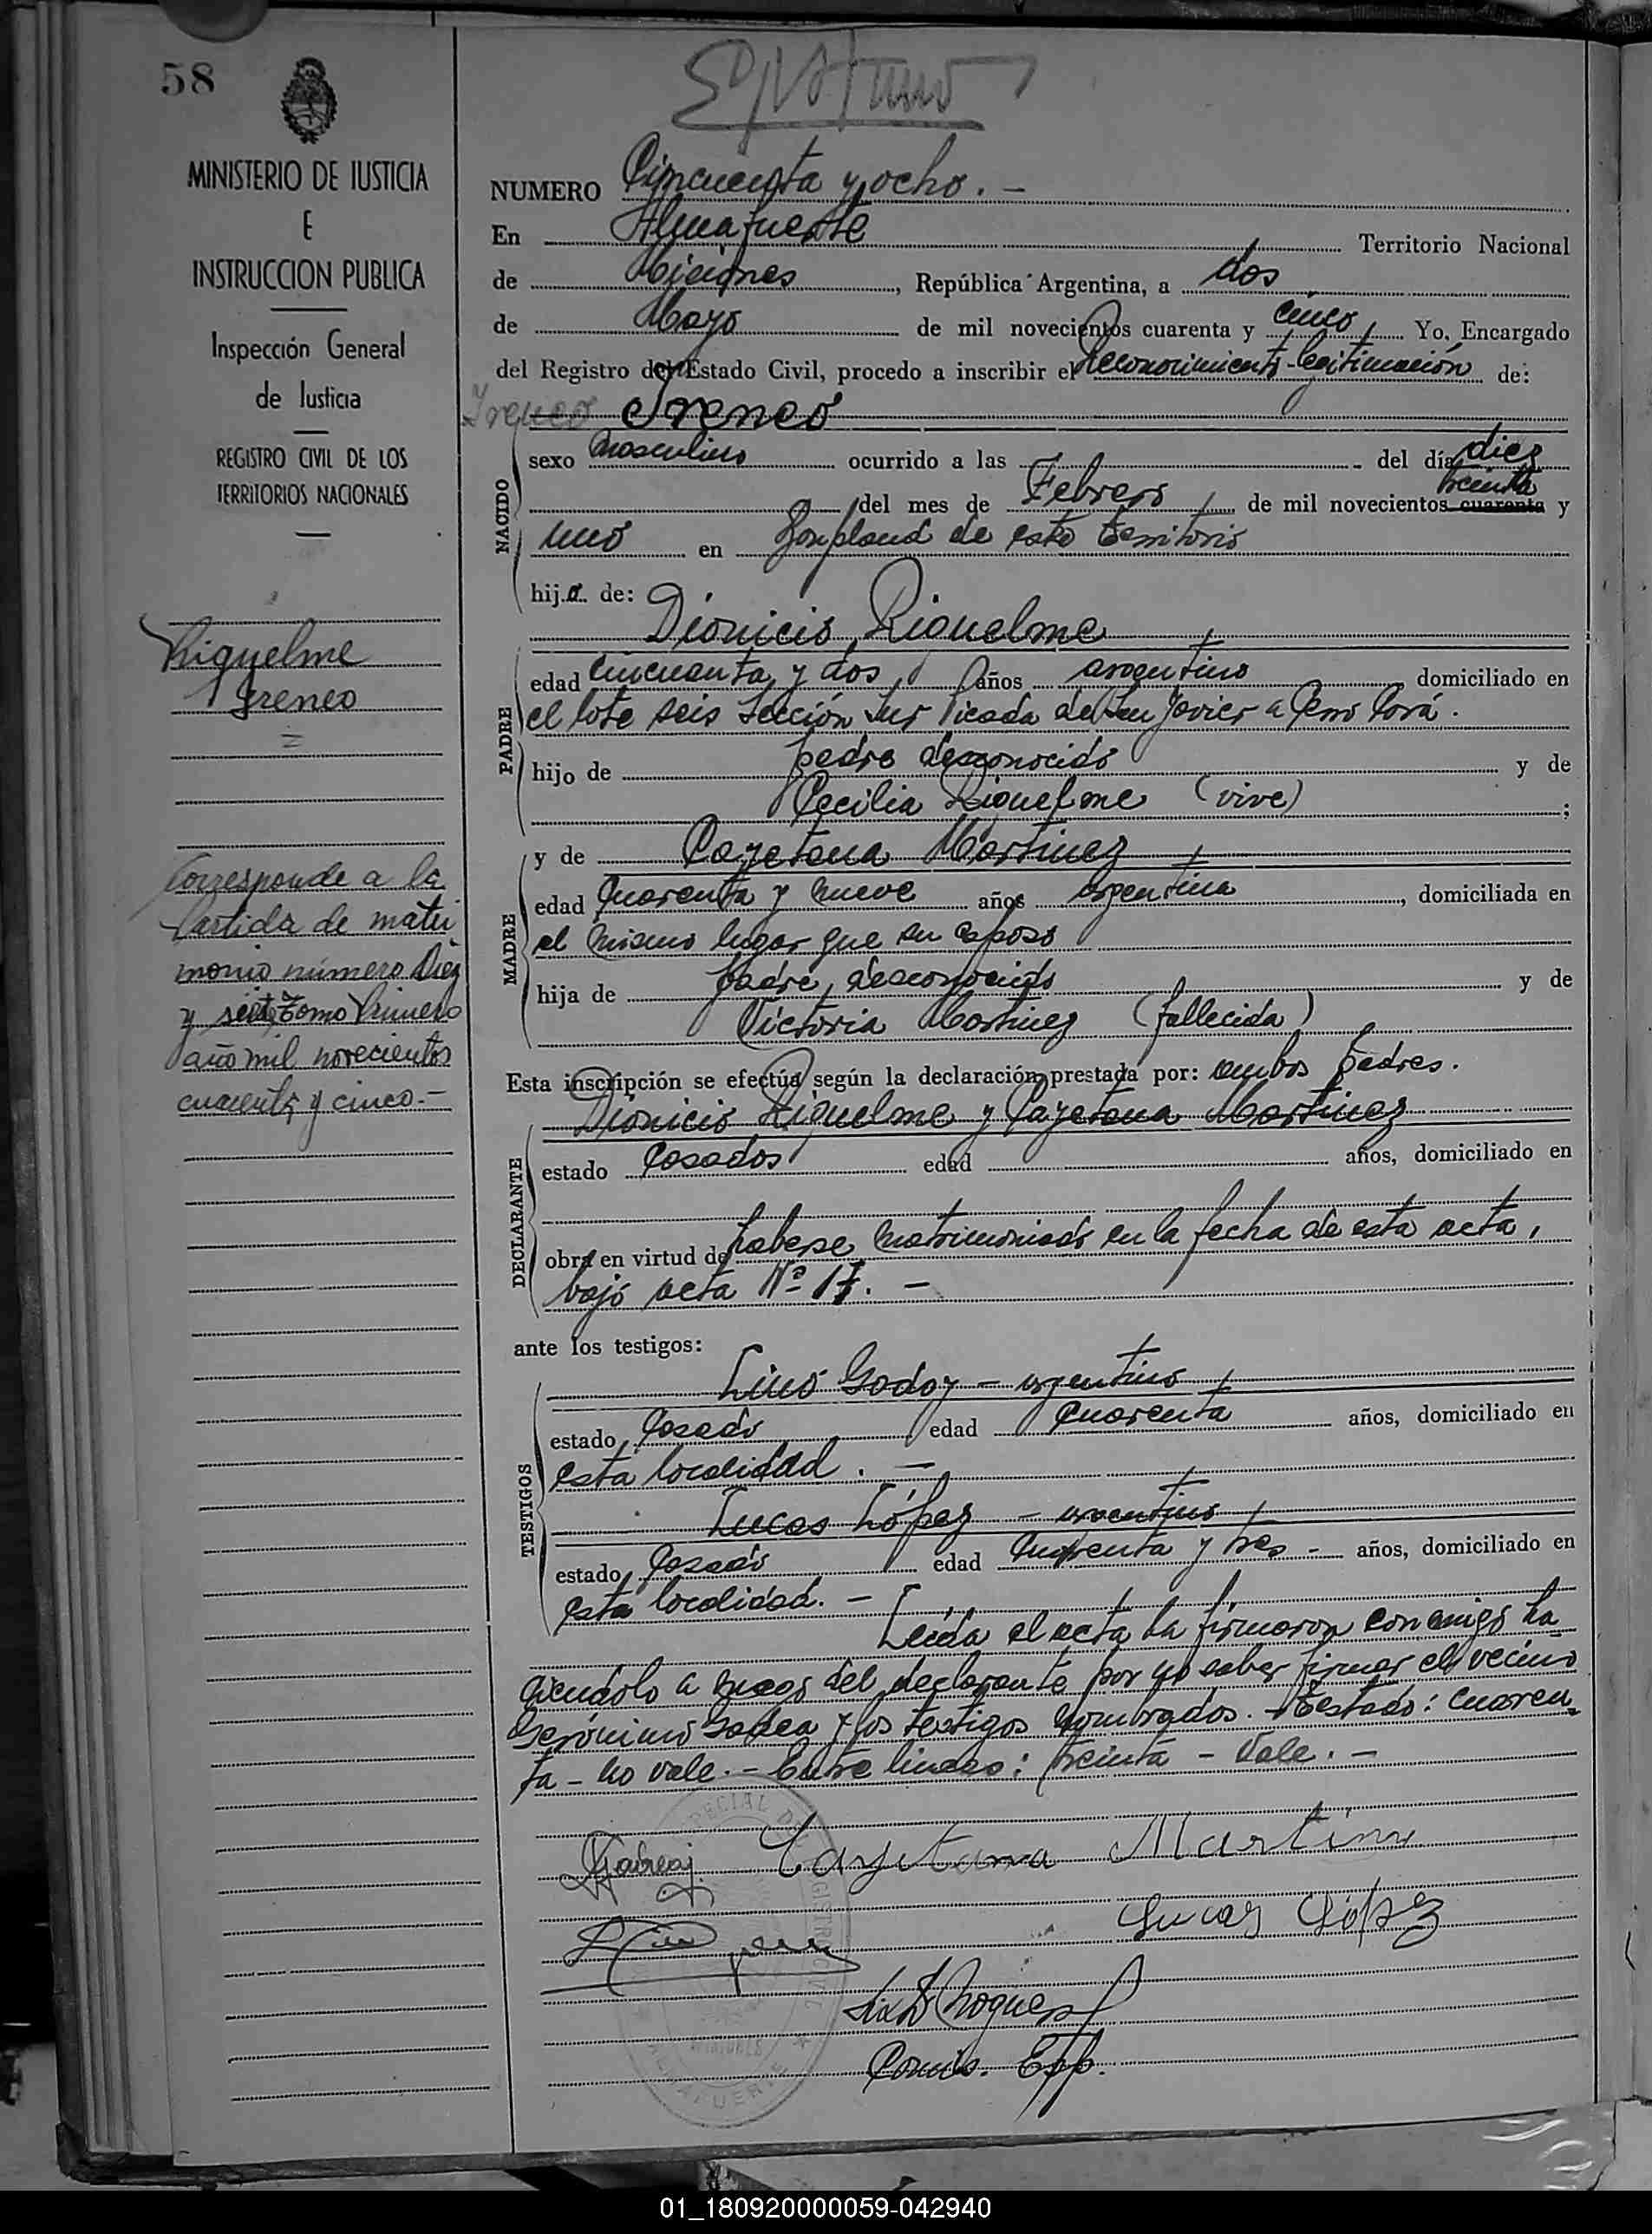 58
MINISTERIO DE JUSTICIA
E
INSTRUCCION PUBLICA
Inspección General
de Justicia
REGISTRO CIVIL DE LOS
TERRITORIOS NACIONALES
Riquelme
Ireneo
Corresponde a la
Partida de matri
monio número Diez
y siete, Tomo Primero
año mil novecientos
cuarenta y cinco.-
NUMERO Cincuenta y ocho. -
En Almafuerte Territorio Nacional
de Misiones, República Argentina, a dos
de Mayo de mil novecientos cuarenta y cinco, Yo, Encargado
del Registro del Estado Civil, procedo a inscribir el Reconocimiento-legitimación de:
Ireneo Ireneo
NACIDO
sexo masculino ocurrido a las del día diez
treinta
del mes de Febrero, de mil novecientos cuarenta y
uno en Bonpland de este territorio
hijo de:
Dionicio Riquelme
PADRE
edad cincuenta y dos años argentino domiciliado en
el lote seis Sección Sur Picada de San Javier a Cerro Corá.
hijo de padre desconocido y de
Cecilia Riquelme (vive) ;
MADRE
y de Cayetana Martinez
edad cuarenta y nueve años argentina, domiciliada en
el mismo lugar que su esposo
hija de padre desconocido y de
Victoria Martinez (fallecida)
Esta inscripción se efectúa según la declaración prestada por: ambos padres.
DECLARANTE
Dionicio Riquelme y Cayetana Martinez
estado Casados edad años, domiciliado en
obra en virtud de haberse matrimoniado en la fecha de esta acta,
bajo acta Nº 17. -
ante los testigos:
TESTIGOS
Lino Godoy - argentino
estado Casado edad cuarenta años, domiciliado en
esta localidad. -
Lucas López - argentino
estado Casado edad cuarenta y tres - años, domiciliado en
esta localidad. -
Leída el acta la firmaron conmigo ha
ciendolo a ruego del declarante por no saber firmar el vecino
Gerónimo y los testigos nombrados. - Testado: cuaren
ta - no vale. - Entre lineas: treinta - Vale. -
Cayetana Martinez
Lucas López
Comis. Esp.
01_180920000059-042940